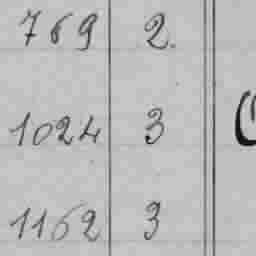 769 2.
1024 3
1162 3